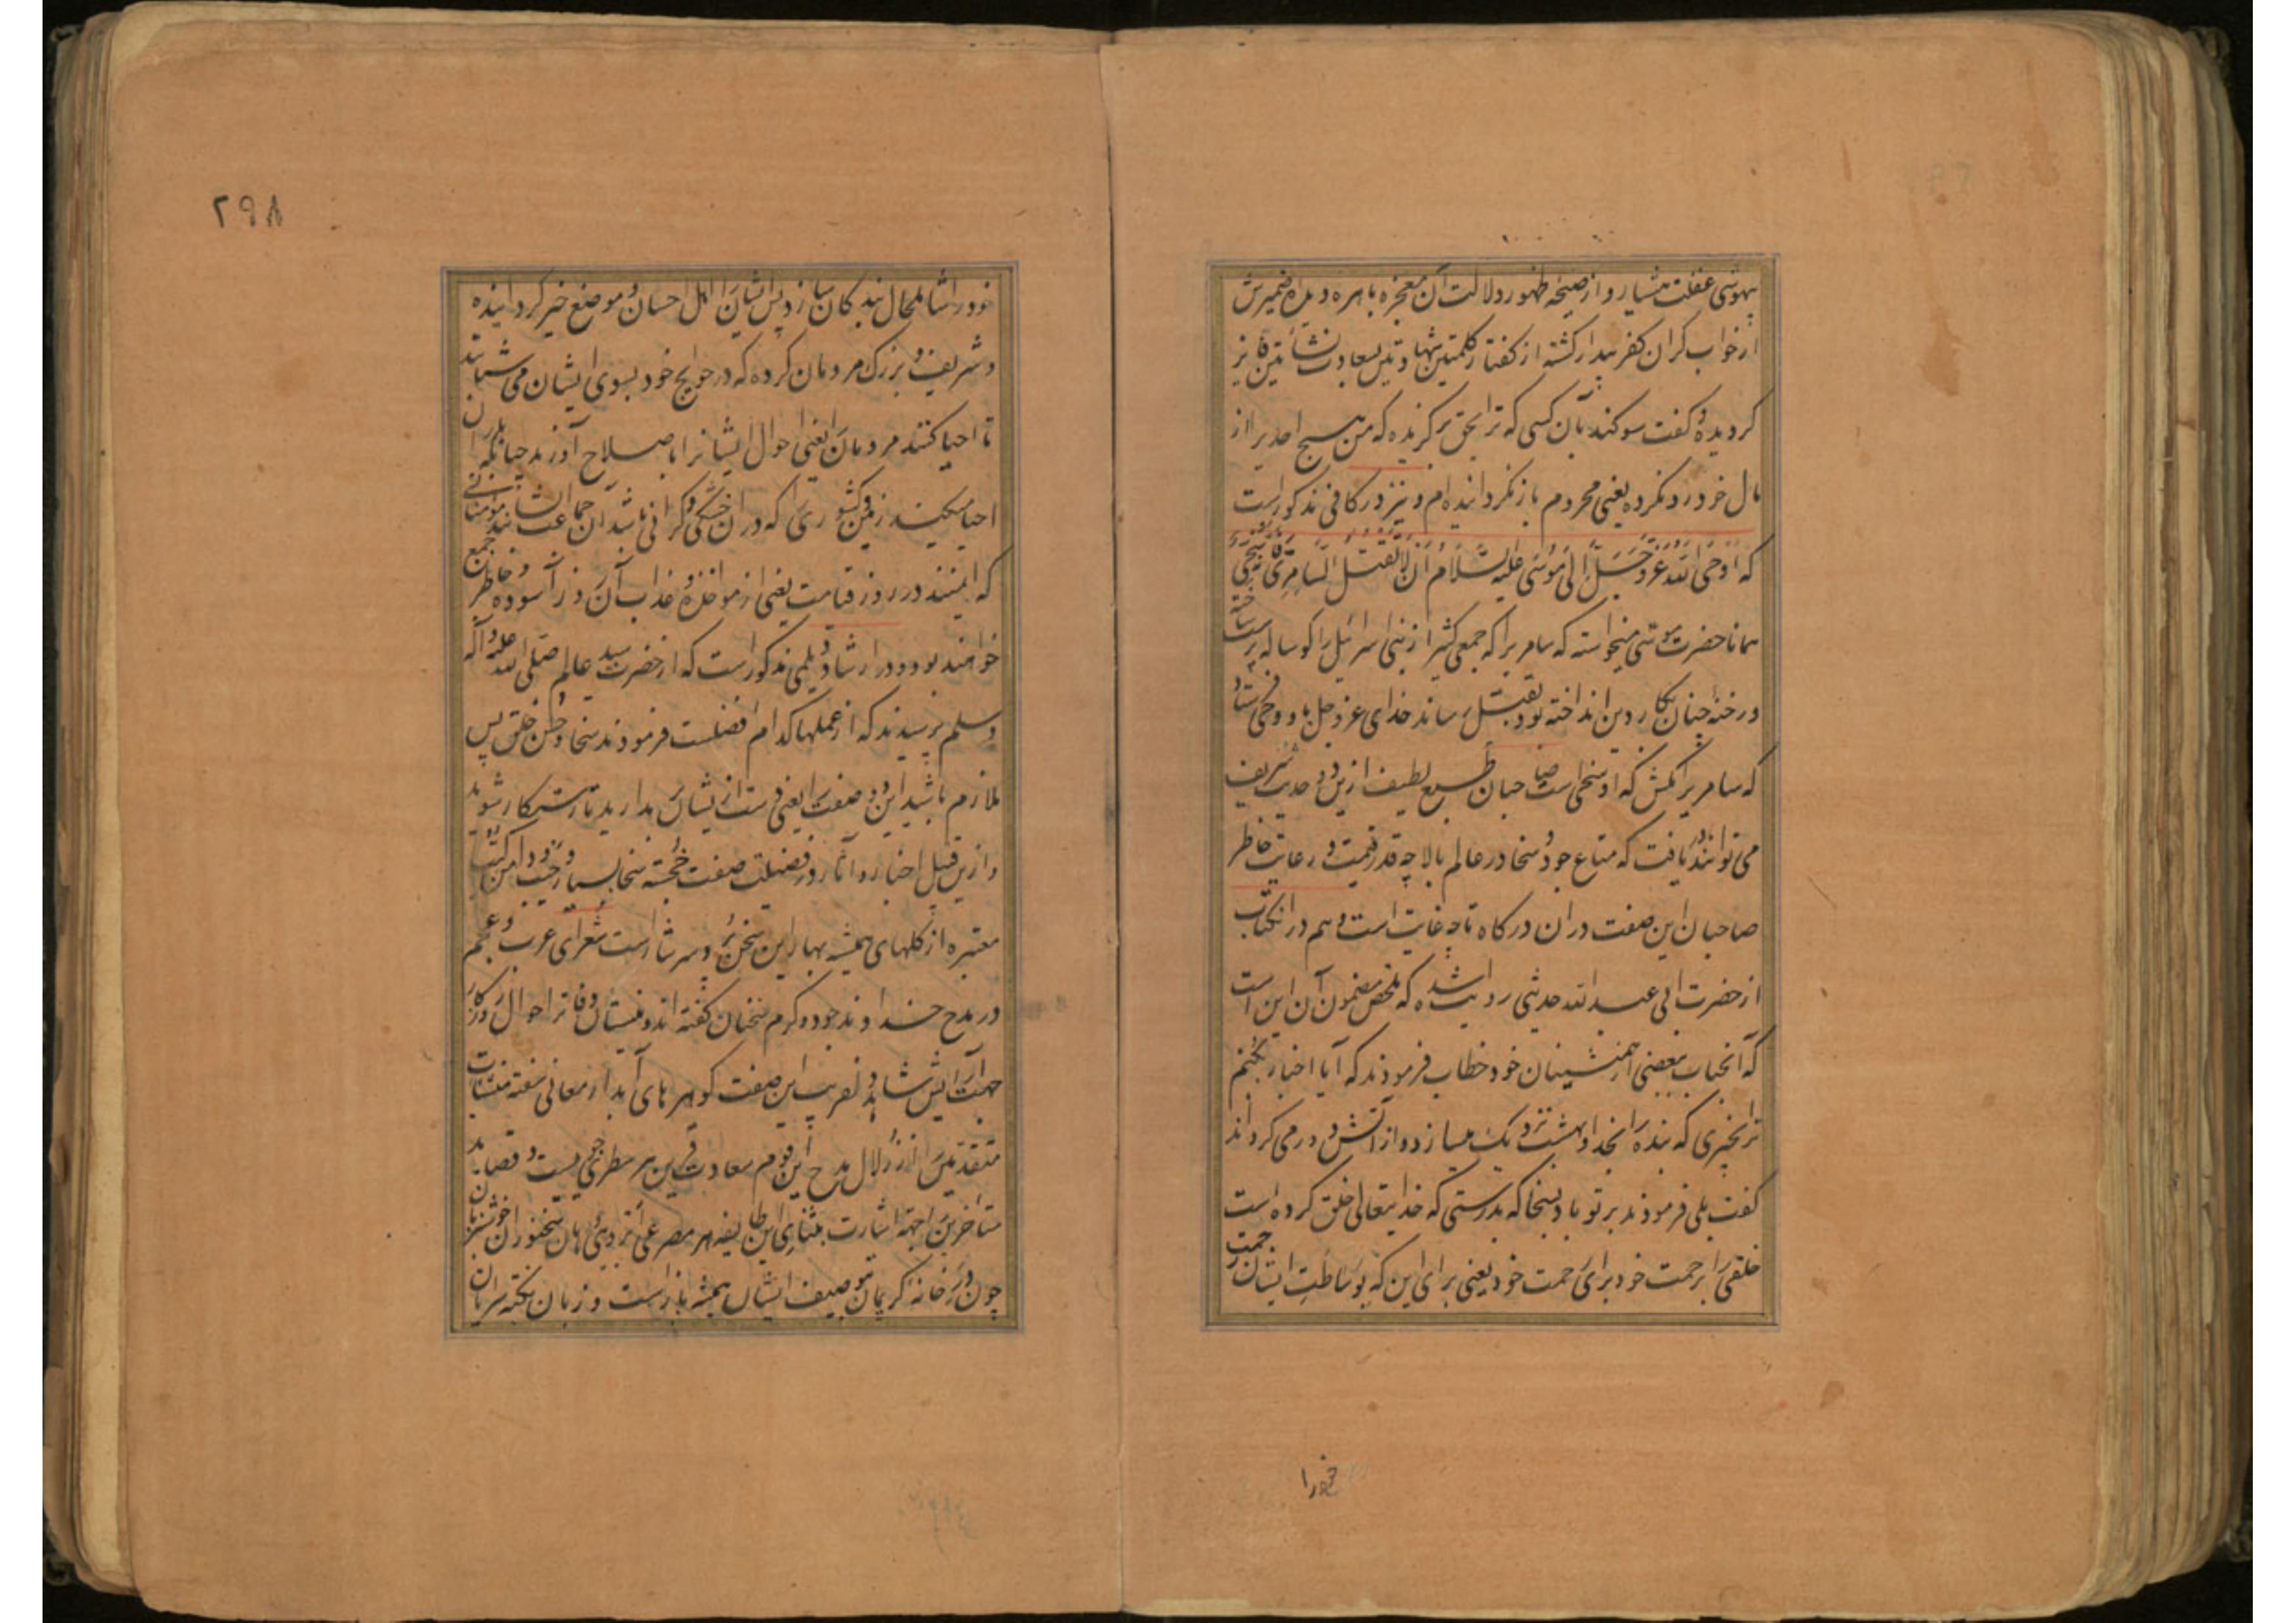 بیهوشی غفلت هشیار و از صیحه ظهور دلالت آن معجزه باهره دیده ضمیرش
از خواب گران کفر بیدار کشته از کفتار کلمتین شهادتین بسعادت نشأتین فایز
کردیده و کفت سوکند بآن کسی که ترا بحق برکزیده که من هیچ احدیرا از
مال خود رد نکرده یعنی محروم باز نکردانیده ام و نیز در کافی مذکور است
که اَوحَی اللّه عَزَّ وَجَلَّ اِلی مُوسٰی عَلَیهِ السَّلامُ اَن لا تَقتُلِ السّامِرِیَّ فَاِنَّهُ سَخِیٌّ
همانا حضرت موسی میخواسته که سامریرا که جمعی کثیر از بنی اسرائیل را کوساله پرست ساخته
و رخنه چنان بکار دین انداخته بود بقتل رساند خدای عز و جل باو وحی فرستاد
که سامریرا مکش که او سخی است صاحبان طبع لطیف ازین دو حدیث شریف
می توانند یافت که متاع جود و سخا در عالم بالا چه قدر قیمت و رعایت خاطر
صاحبان این صفت در ان درکاه تا چه غایت است و هم در انکتاب
از حضرت ابی عبد اللّه حدیثی روایت شده که ملخص مضمون آن این است
که آنجناب ببعضی از همنشینان خود خطاب فرمودند که آیا اخبار نکنم
ترا بخیری که بنده را بخدا و بهشت نزدیک میسازد و از آتش دور می کرداند
کفت بلی فرمودند بر تو باد بسخا که بدرستی که خدایتعالی خلق کرده است
خلقی را برحمت خود برای رحمت خود یعنی برای این که بوساطت ایشان رحمت
خود را
۲۹۸
خود را شامل حال بندکان سازد پس ایشان را اهل احسان و موضع خیر کردانیده
و شریف و بزرک مردمان کرده که در حوایج خود بسوی ایشان می شتابند
تا احیا کنند مردمان را یعنی احوال ایشانرا باصلاح آورند چنانکه باران
احیا میکند زمین کشوری را که در ان خشکی و کرانی باشد آن جماعت ایشانند مؤمنانی
که ایمنند در روز قیامت یعنی از مواخذه و عذاب آن روز آسوده و خاطر جمع
خواهند بود و در ارشاد دیلمی مذکور است که از حضرت سید عالم صلی اللّه علیه و آله
و سلم پرسیدند که از عملها کدام افضلست فرمودند سخا و حسن خلق پس
ملازم باشید این دو صفت را یعنی دست از ایشان مدارید تا رستکار شوید
و ازین قبیل اخبار و آثار در فضیلت صفت خجسته سخا بسیار و جیب و دامن کتب
معتبره از کلهای همیشه بهار این سخن پر و سرشار است شعرای عرب و عجم
در مدح خداوند جود و کرم سخنان کفته اند و منشیان دفاتر احوال روزکار
جهت آرایش شاهد دلفریب این صفت کوهر های آبدار معانی سفته منشآت
متقدمین را از زلال مدح این قوم سعادت قرین هر سطری جویی است و قصاید
متاخرین را جهة اشارت بثنای این طایفه هر مصرعی ابرویی دهان سخنوران خوش بیان
چون در خانه کریمان بتوصیف ایشان همیشه باز است و زبان نکته سرایان